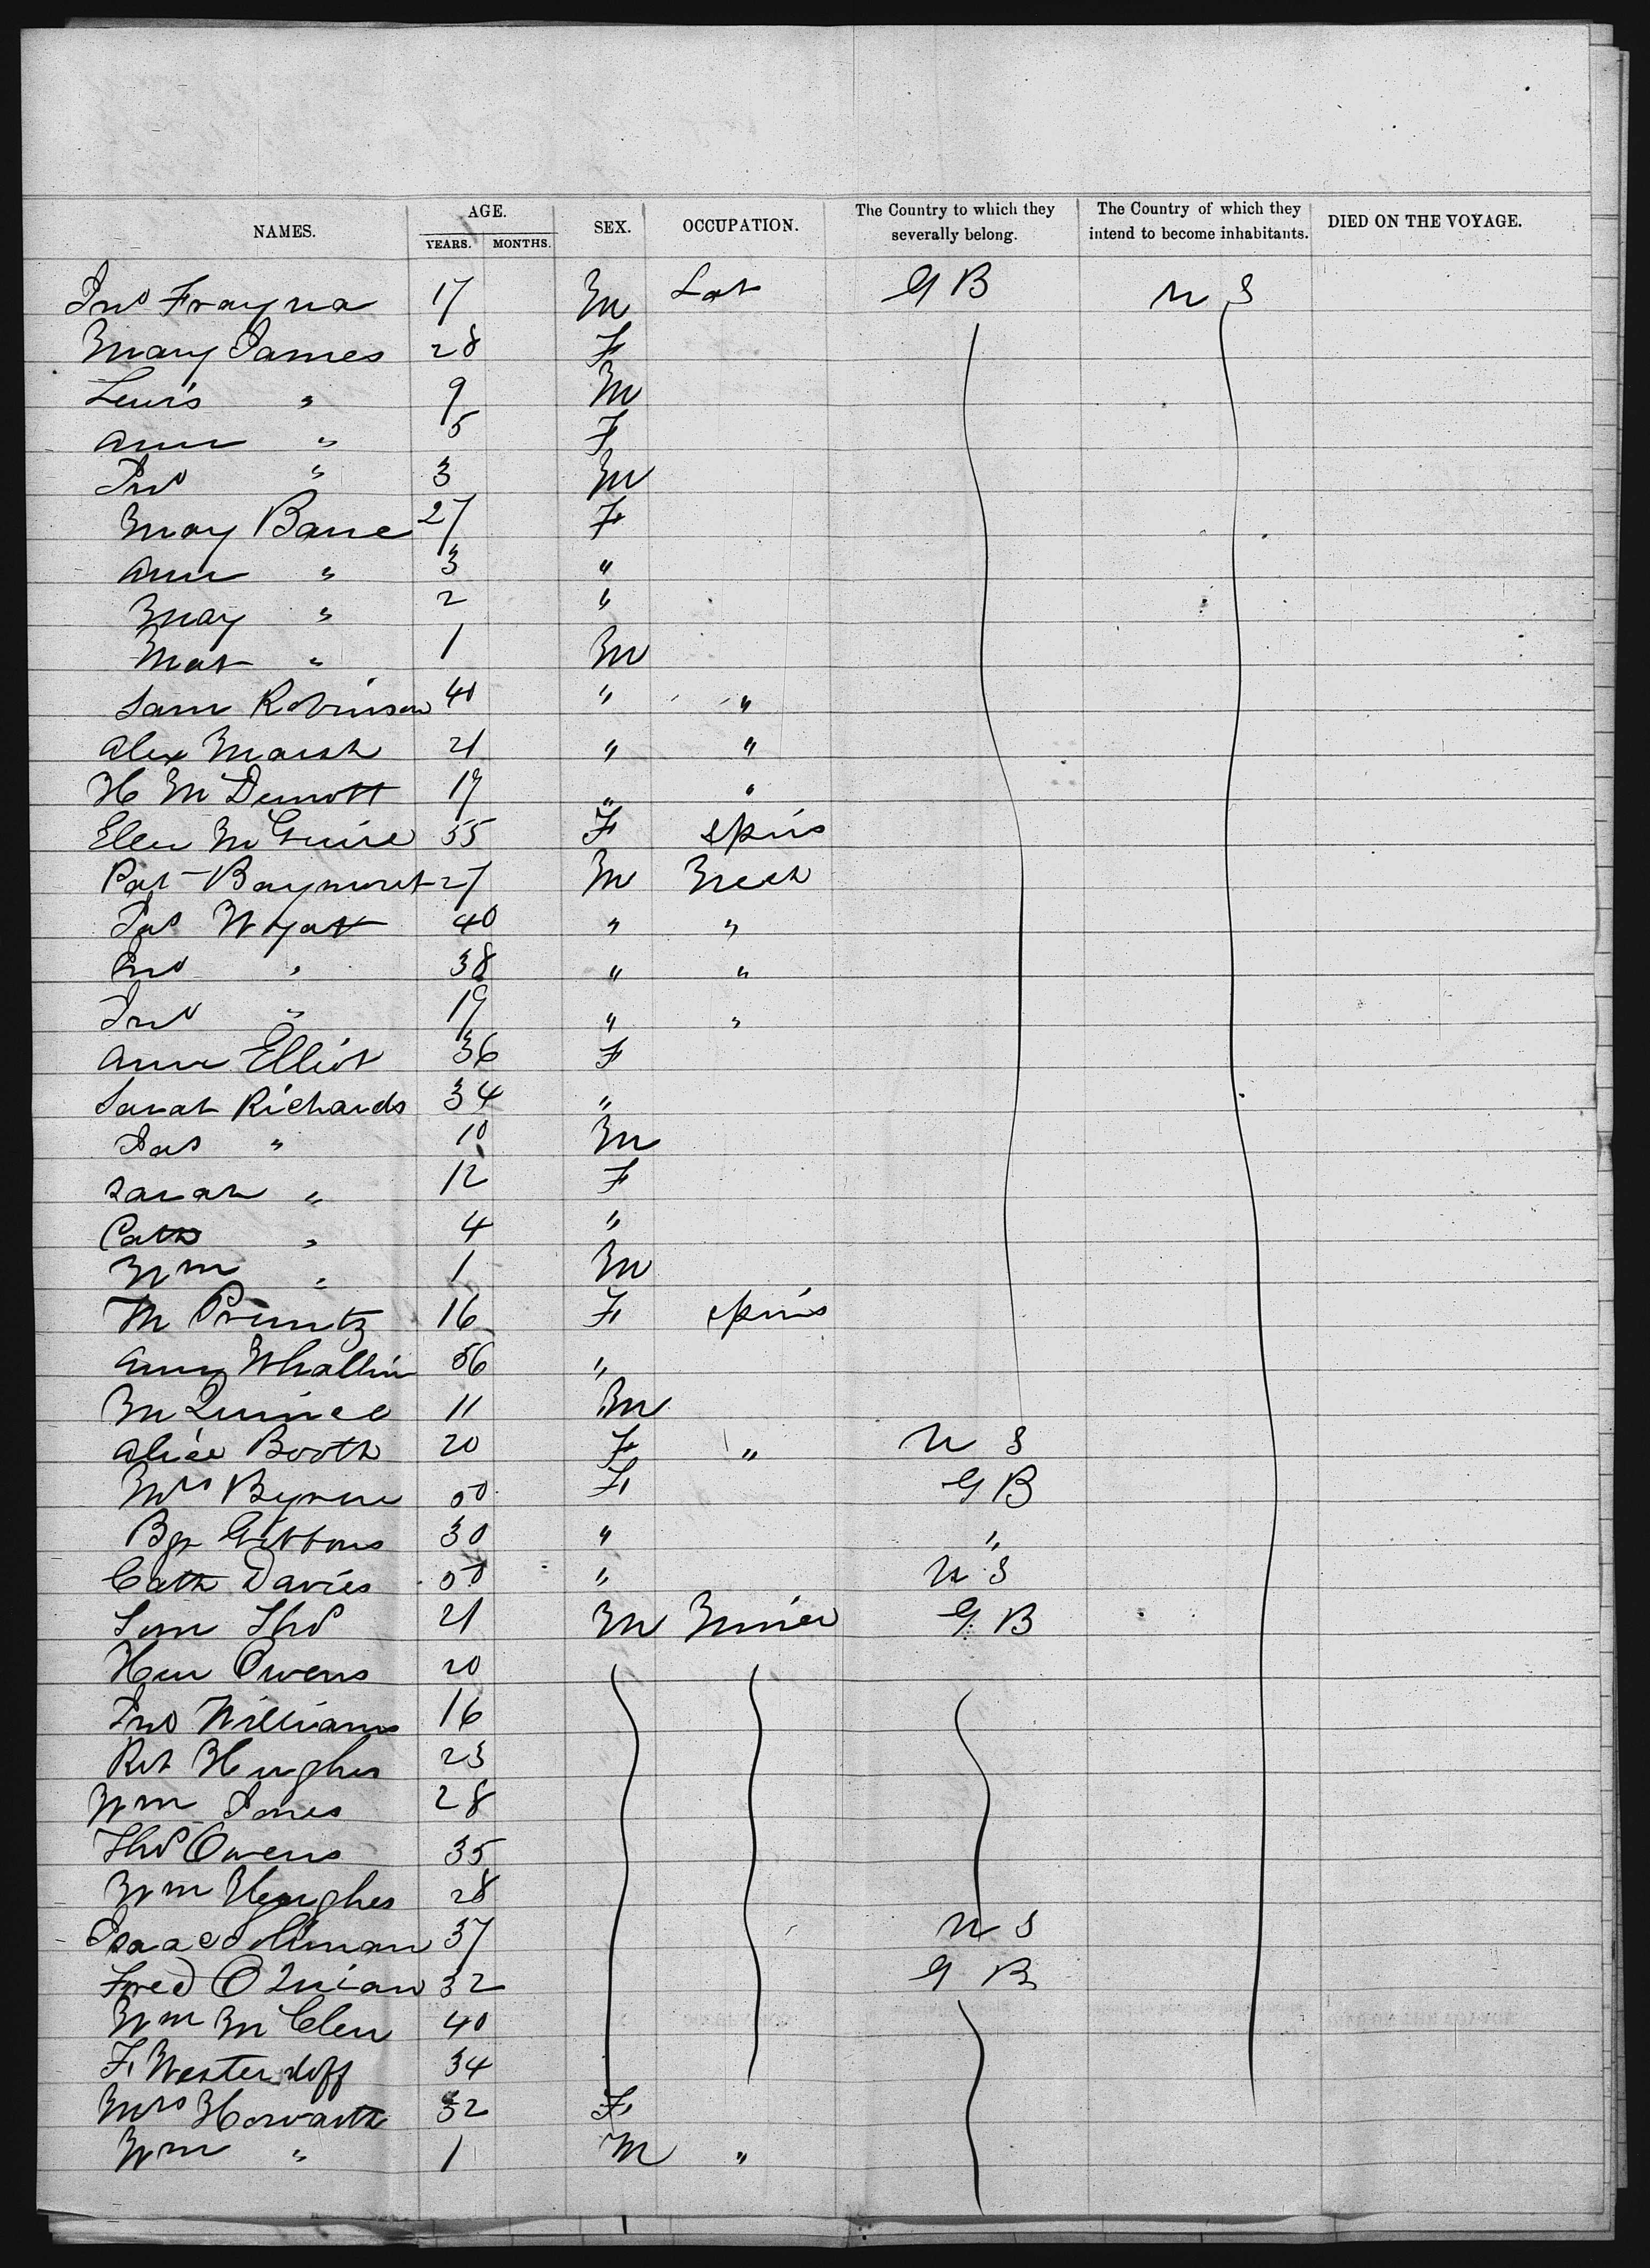 NAMES. AGE. YEARS. MONTHS. SEX. OCCUPATION. The Country to which they severally belong. The Country of which they intend to become inhabitants. DIED ON THE VOYAGE.
Jno Frayna 17 M Lab G B U S
Mary James 28 F
Lewis " 9 M
Ann " 5 F
Jno " 3 M
May Bane 27 F
Ann " 3 "
May " 2 "
Mat " 1 M
Sam Robinson 40 " "
Alex Marsh 21 " "
H McDermott 19 " "
Ellen McGuire 55 F Spins
Pat 27 M Mech
Jas Wyatt 40 " "
Jno " 38 " "
Jno " 19 " "
Anne Elliot 36 F
Sarah Richards 34 "
Jas " 10 M
Sarah " 12 F
Cath " 4 "
Wm " 1 M
M 16 F Spins
Anny Whallin 56 "
11 M
Alice Booth 20 F " U S
Mrs Byrne 50 F G B
Gibbons 30 " "
Cath Davies 50 " U S
Thos 21 M Miner G B
Hen Owens 20
Jno Williams 16
Rbt Hughes 23
Wm Jones 28
Thos Owens 35
Wm Hughes 28
Isaac 37 U S
Fred 32 G B
Wm McClen 40
F. Westerdoff 34
Mrs Howarth 32 F
Wm " 1 M "